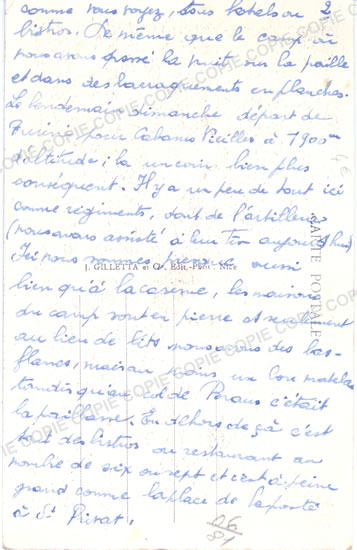 comme vous voyez, tous hotels ou 2
bistros. De même que le camp où
nous avons passé la nuit sur la paille
et dans des barraquements en planches.
Le lendemain dimanche départ de
pour Cabanes Vieilles à 1900m
d'altitude; là un coin bien plus
conséquent. Il y a un peu de tout ici
comme régiments, dont de l'artillerie
(nous avons assisté à leur tir aujourd'hui)
Ici nous sommes presque aussi
J. GILETTA et Cie, Edit.-Phot., Nice
bien qu'à la caserne, les maisons
du camp sont en pierre et seulement
au lieu de lits nous avons des bas-
flancs, mais un bon matelas
tandis qu'au col de Peraus c'était
la paillasse. En dehors de çà c'est
tout des bistros ou restaurant au
nombre de six ou sept et c'est à peine
grand comme la place de la poste
à St Privat.
26
81
CARTE POSTALE
COPIE COPIE COPIE COPIE COPIE COPIE